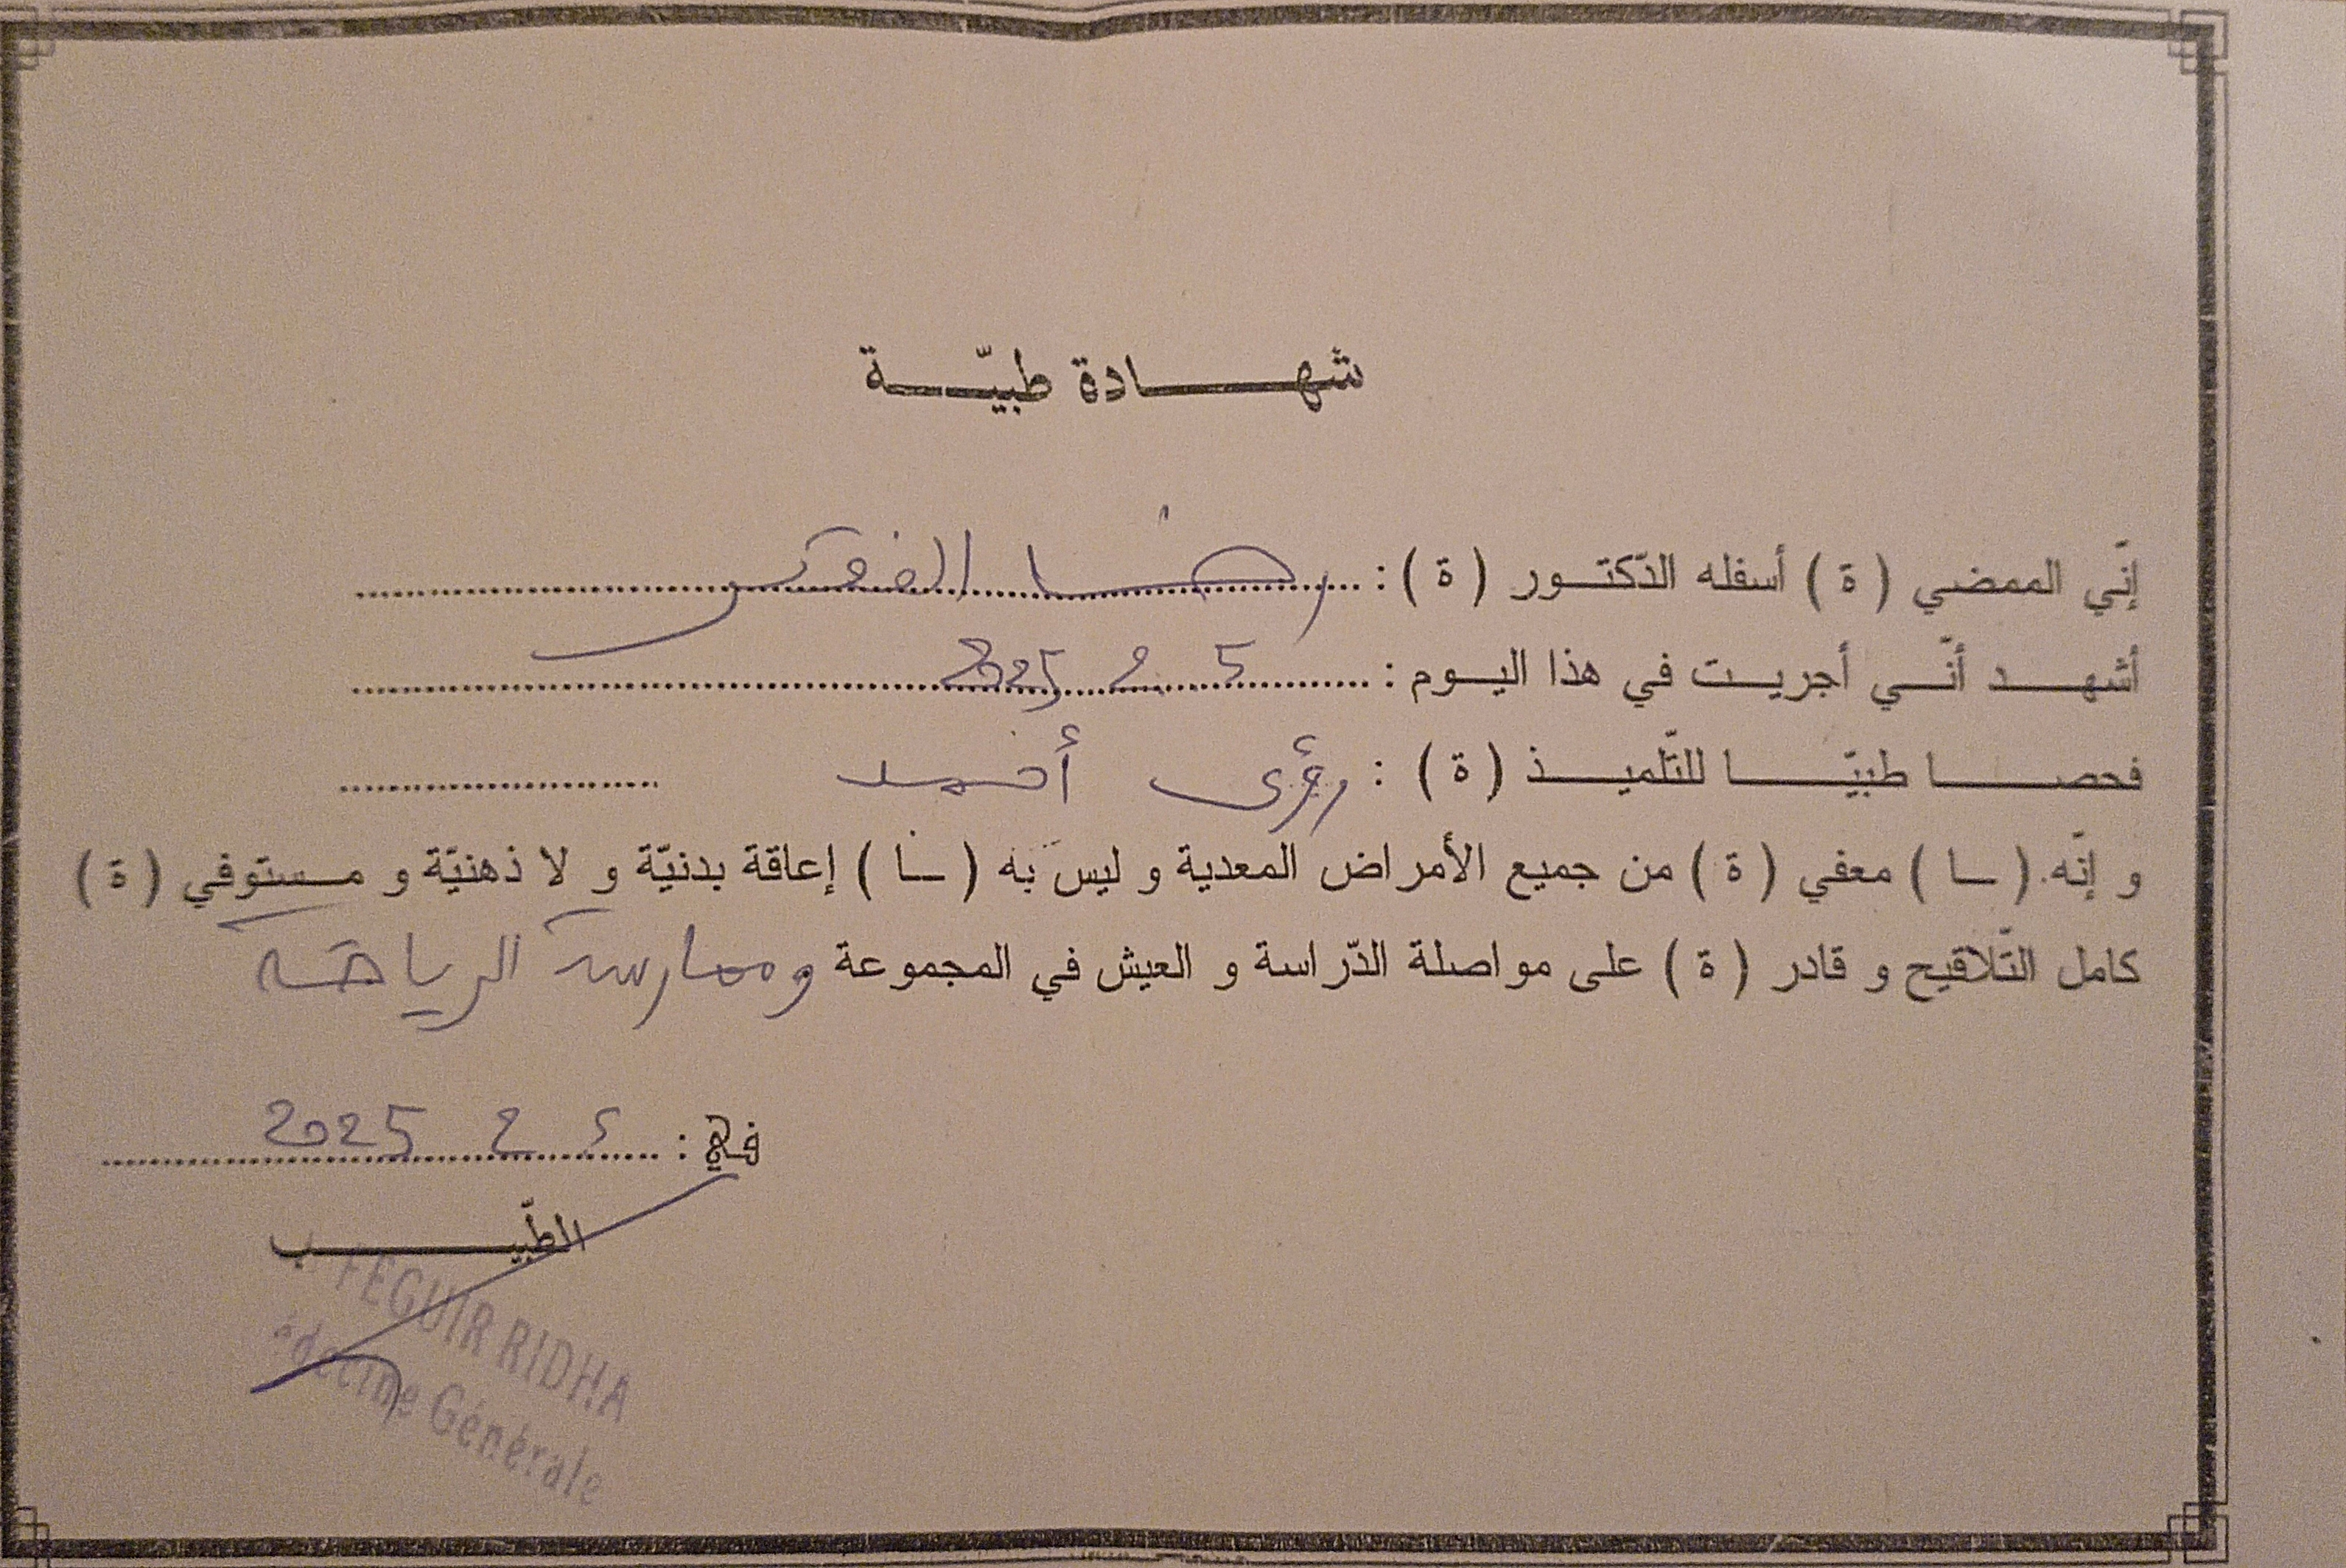 شهادة طبيّة
إنّي الممضي (ة) أسفله الدّكتور (ة) : رضا الفقير
أشهد أنّي أجريت في هذا اليوم : 5 2 2025
فحصا طبيّا للتّلميذ (ة) : رؤى أحمد
و إنّه (ـا) معفي (ة) من جميع الأمراض المعدية و ليس به (ـا) إعاقة بدنيّة و لا ذهنيّة و مستوفي (ة)
كامل التّلاقيح و قادر (ة) على مواصلة الدّراسة و العيش في المجموعة وممارسة الرياضة
في : 5 2 2025
الطّبيب
FEGUIR RIDHA
édecine Générale